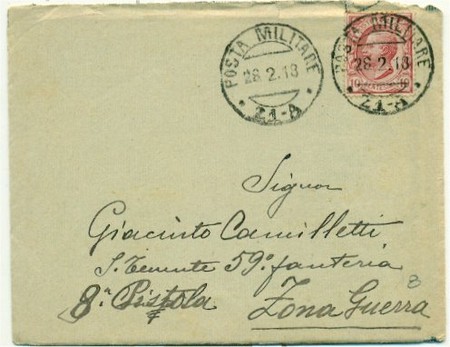 POSTA MILITARE
28.2.18
21-A
POSTA MILITARE
28.2.18
21-A
10 10
Signor
Giacinto Camilletti
S. Tenente 59º fanteria
8ª Pistola Zona Guerra
8